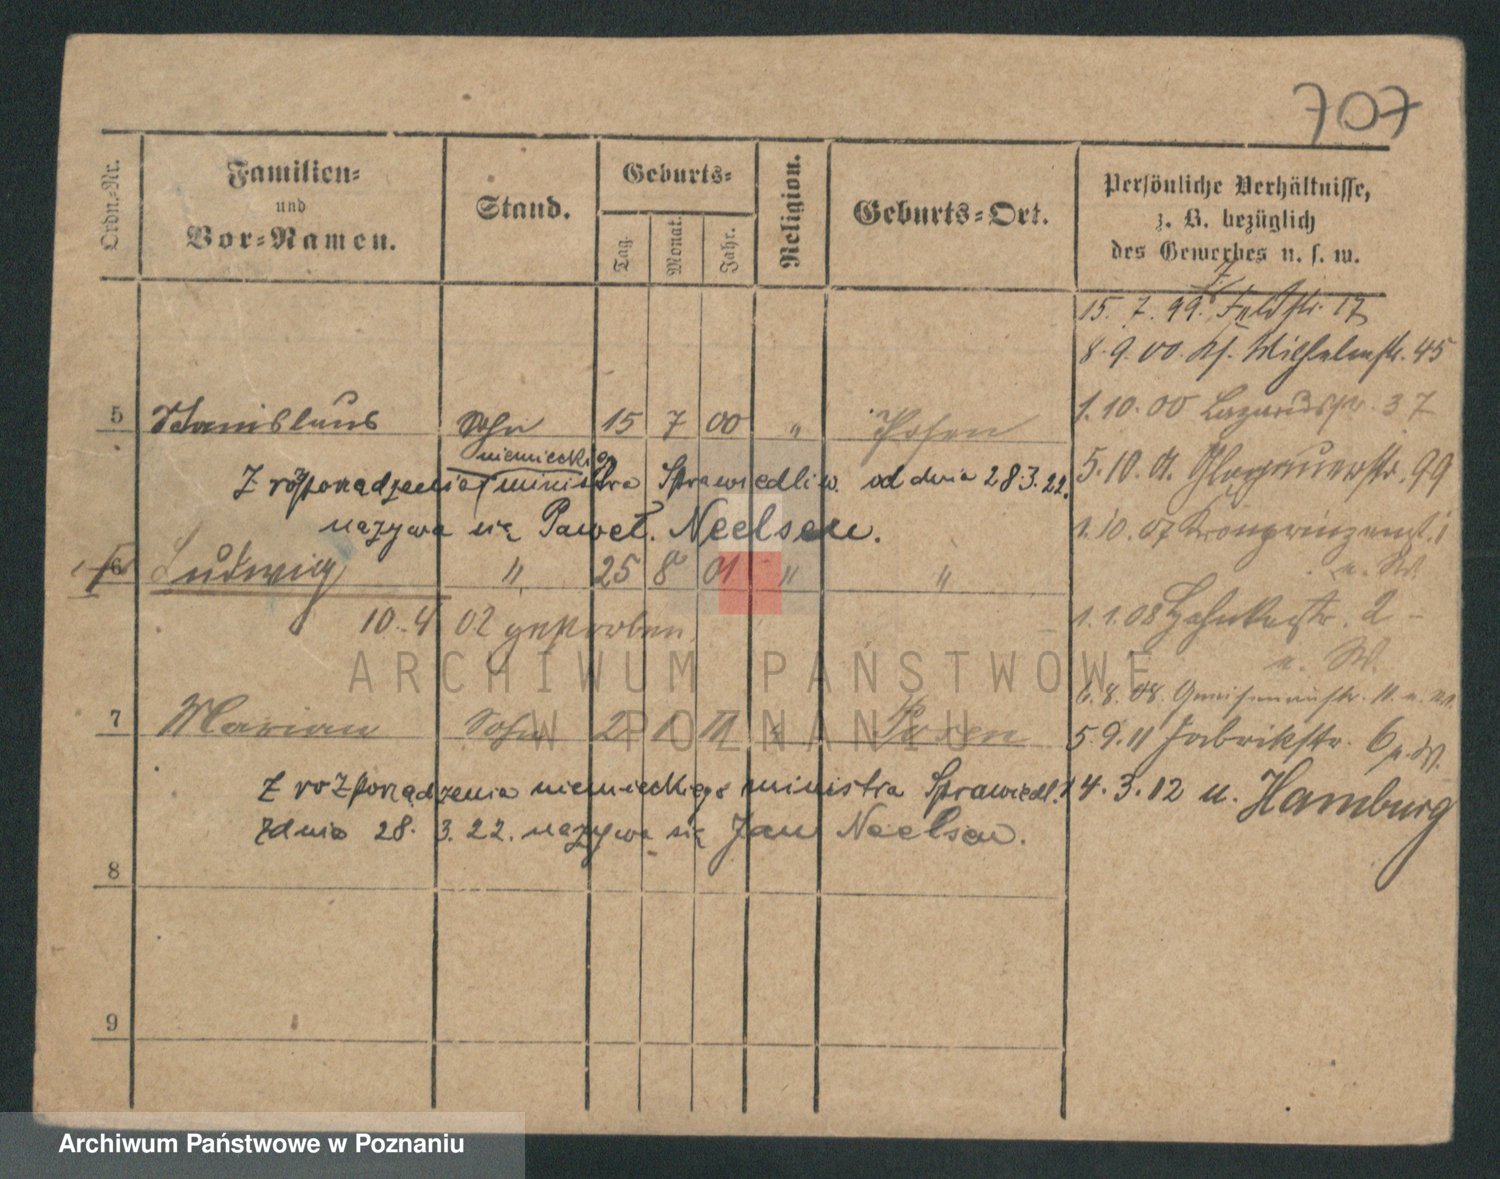 707
Ordn.-Nr.
Familien-
und
Vor-Namen.
Stand.
Geburts-
Tag.
Monat.
Jahr.
Religion.
Geburts-Ort.
Persönliche Verhältnisse,
z. B. bezüglich
des Gewerbes u. s. w.
15. 7. 99. Feldstr. 17
8. 9. 00. Wilhelmstr. 45
5 Stanislaus Sohn 15 7 00 " Posen
1. 10. 00 Lazarusstr. 37
niemieckiego
Z rozporządzenia ministra Sprawiedliw. od dnia 28.3.22.
5. 10. 01. Glogauerstr. 99
nazywa się Paweł Neelsen.
1. 10. 07 Kronprinzenst. 1
u. W.
6 Ludwig " 25 8 01 " "
10. 4 02 gestorben
1. 1. 08 2
u. W.
7 Marian Sohn 2 1 11 " Posen
6. 8. 08. Gneisenaustr. 11 u. W.
5 9. 11 Fabrikstr. 6 u. W.
Z rozporządzenia niemieckiego ministra Sprawiedl.
14. 3. 12 u. Hamburg
z dnia 28. 3. 22. nazywa się Jan Neelsen.
8
9
ARCHIWUM PAŃSTWOWE
W POZNANIU
Archiwum Państwowe w Poznaniu